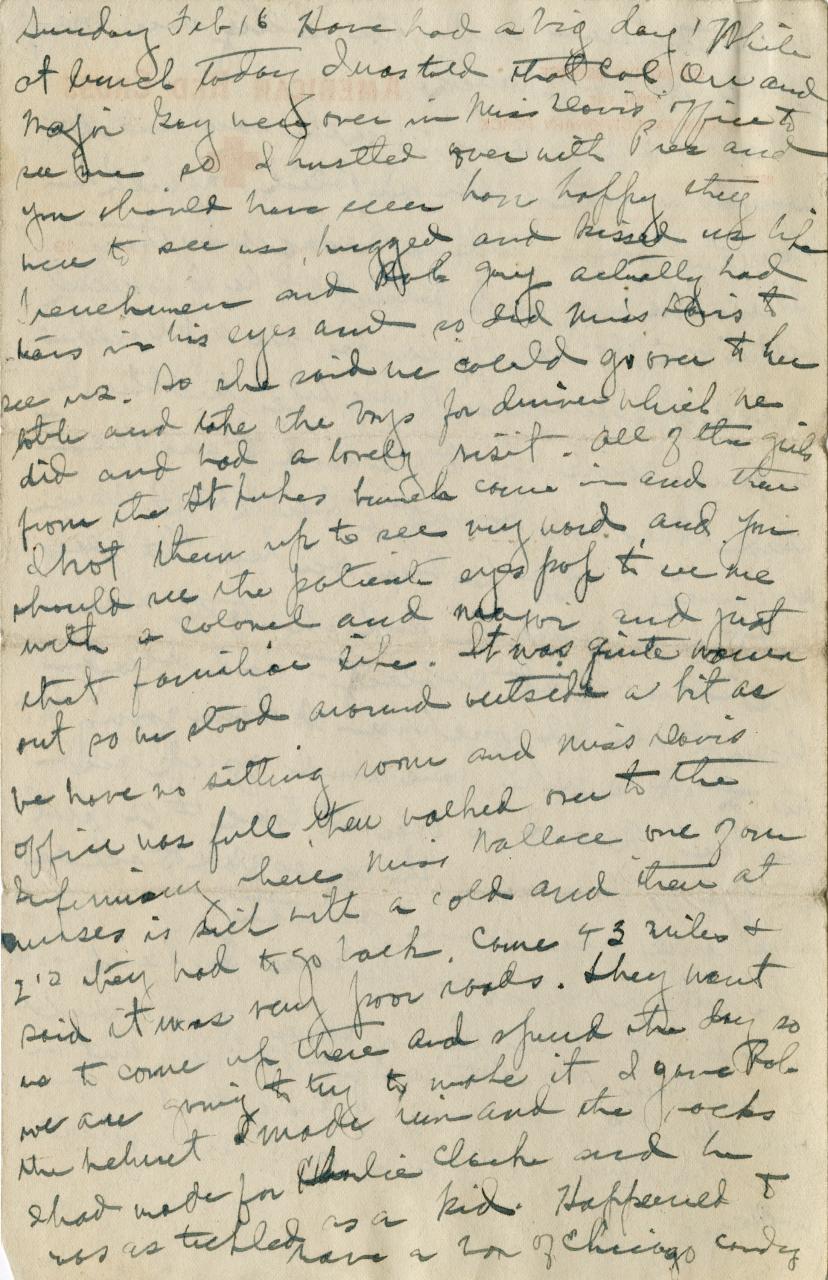 Sunday Feb 16 Have had a big day! While
at lunch today I was told that Col Orr and
Major Gay were over in Miss Davis' office to
see me so I hustled over with Pres and
you should have seen how happy they
were to see us, hugged and kissed us like
Frenchmen and Bob Gay actually had
tears in his eyes and so did Miss Davis to
see us. So she said we could go over to her
table and take the boys for dinner which we
did and had a lovely visit. All of the girls
from the St Lukes bunch came in and then
I hot them up to see my ward and you
should see the patients eyes pop to see me
with a colonel and major and just
that familiar like. It was quite warm
out so we stood around outside a bit as
we have no sitting room and Miss Davis
office was full then walked over to the
Infirmary where Miss Wallace one of our
nurses is sick with a cold and then at
they had to go back. Came 43 miles +
said it was very poor roads. They want
us to come up there and spend the day so
we are going to try to make it I gave Bob
the helmet I made him and the socks
I had made for Charlie Clarke and he
was as tickled as a kid. Happened to
have a box of Chicago candy